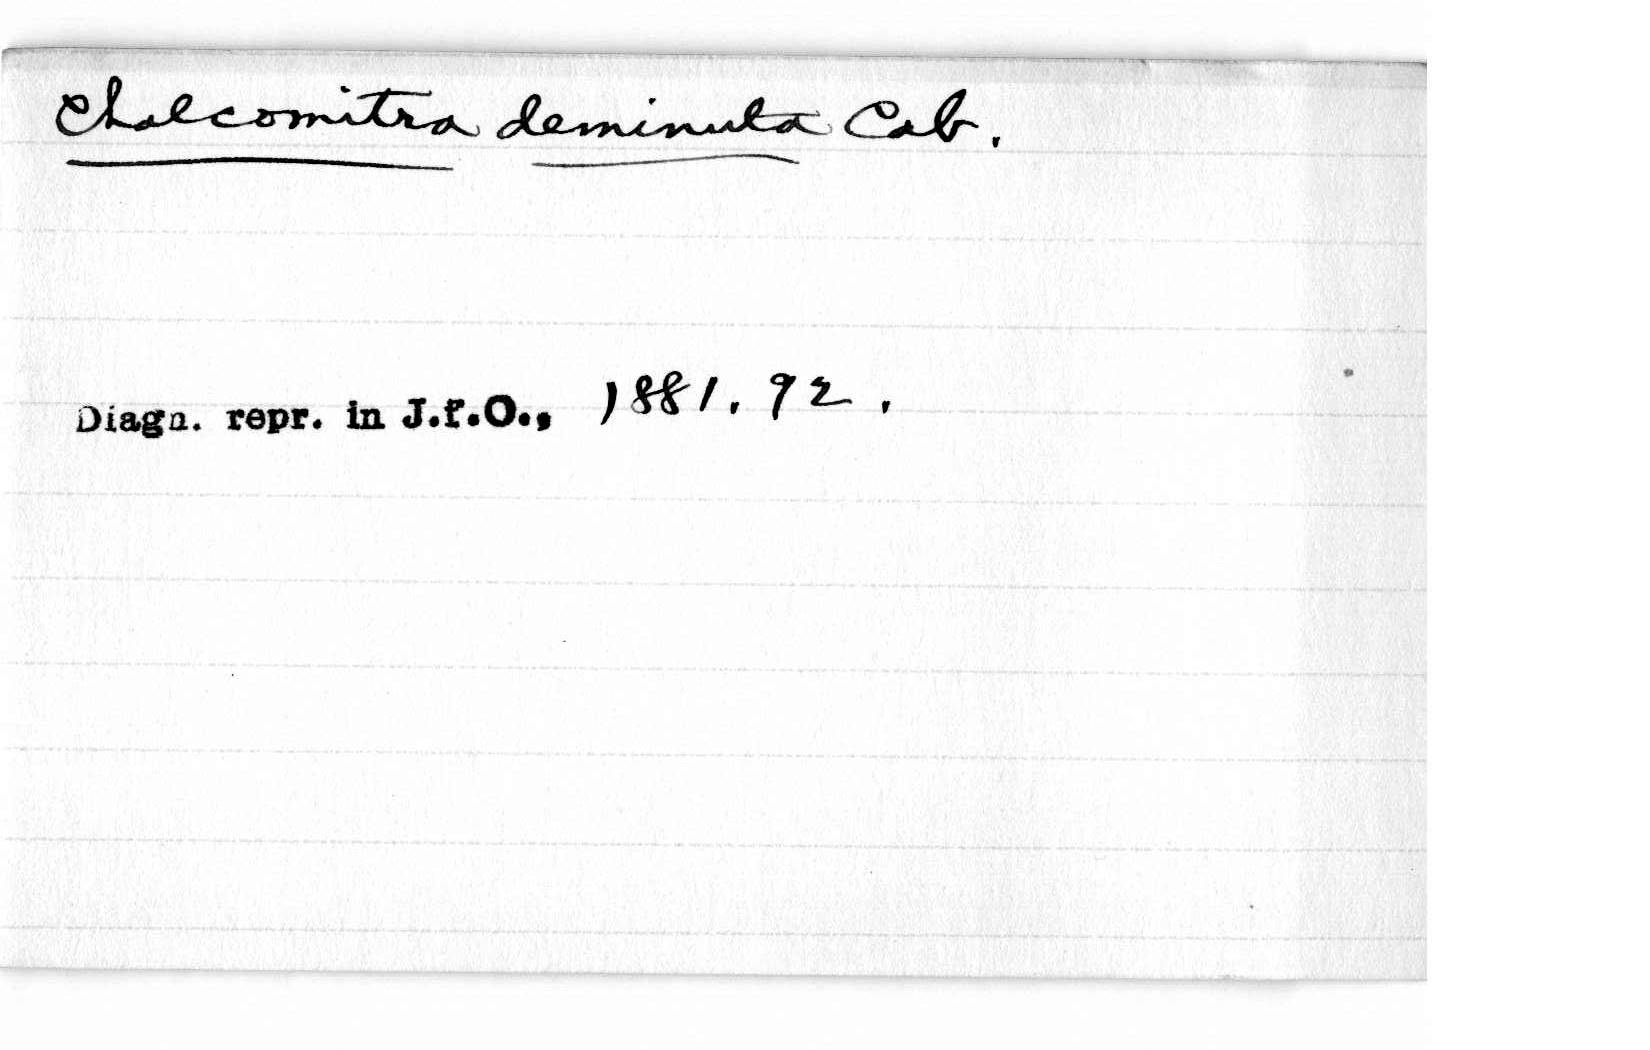 Chalcomitra deminuta Cab.
Diagn. repr. in J.f.O., 1881. 92.